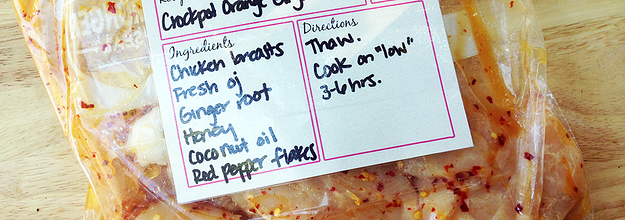 Crockpot Orange
Ingredients
Chicken breasts
Fresh oj
Ginger root
Honey
Coconut oil
Red pepper flakes
Directions
Thaw.
Cook on "low"
3-6 hrs.